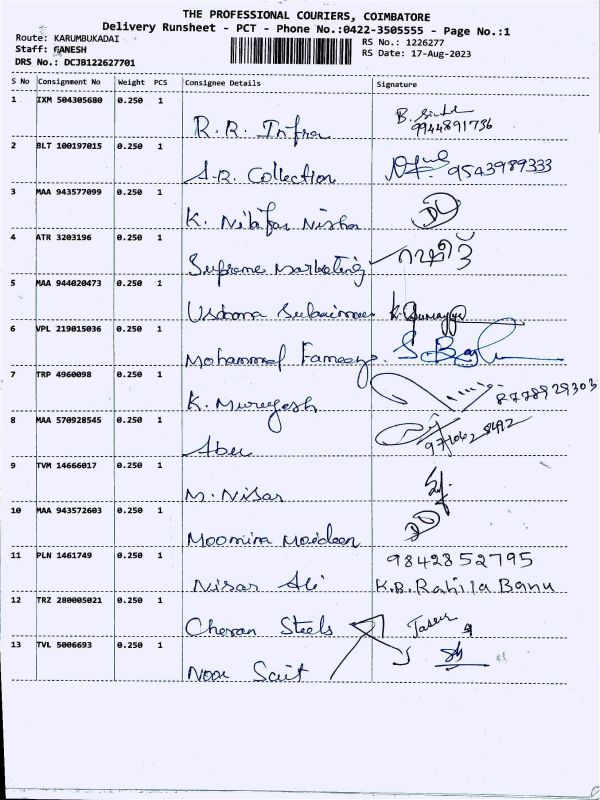 THE PROFESSIONAL COURIERS, COIMBATORE
Delivery Runsheet - PCT - Phone No.:0422-3505555 - Page No.:1
Route: KARUMBUKADAI
RS No.: 1226277
Staff: GANESH
RS Date: 17-Aug-2023
DRS No.: DCJB122627701
S No Consignment No Weight PCS Consignee Details Signature
1 IXM 504305680 0.250 1
R.R. Infra
9944891736
2 BLT 100197015 0.250 1
A.R. Collection 9543989333
3 MAA 943577099 0.250 1
K. Nilafar Nisha
4 ATR 3203196 0.250 1
Supreme Marketing
5 MAA 944020473 0.250 1
6 VPL 219015036 0.250 1
Mohammed
7 TRP 4960098 0.250 1
K. Murugesh 8778929303
8 MAA 570928545 0.250 1
Abu
9 TVM 14666017 0.250 1
M. Nisar
10 MAA 943572603 0.250 1
Moomina Moideen
11 PLN 1461749 0.250 1
9842852795
Nisar Ali K.B. Rahila Banu
12 TRZ 280005021 0.250 1
Cheran Steels
13 TVL 5006693 0.250 1
Noor Sait